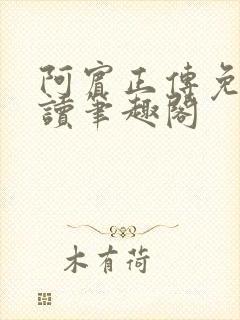 阿賓正傳免
讀筆趣閣
木有荷